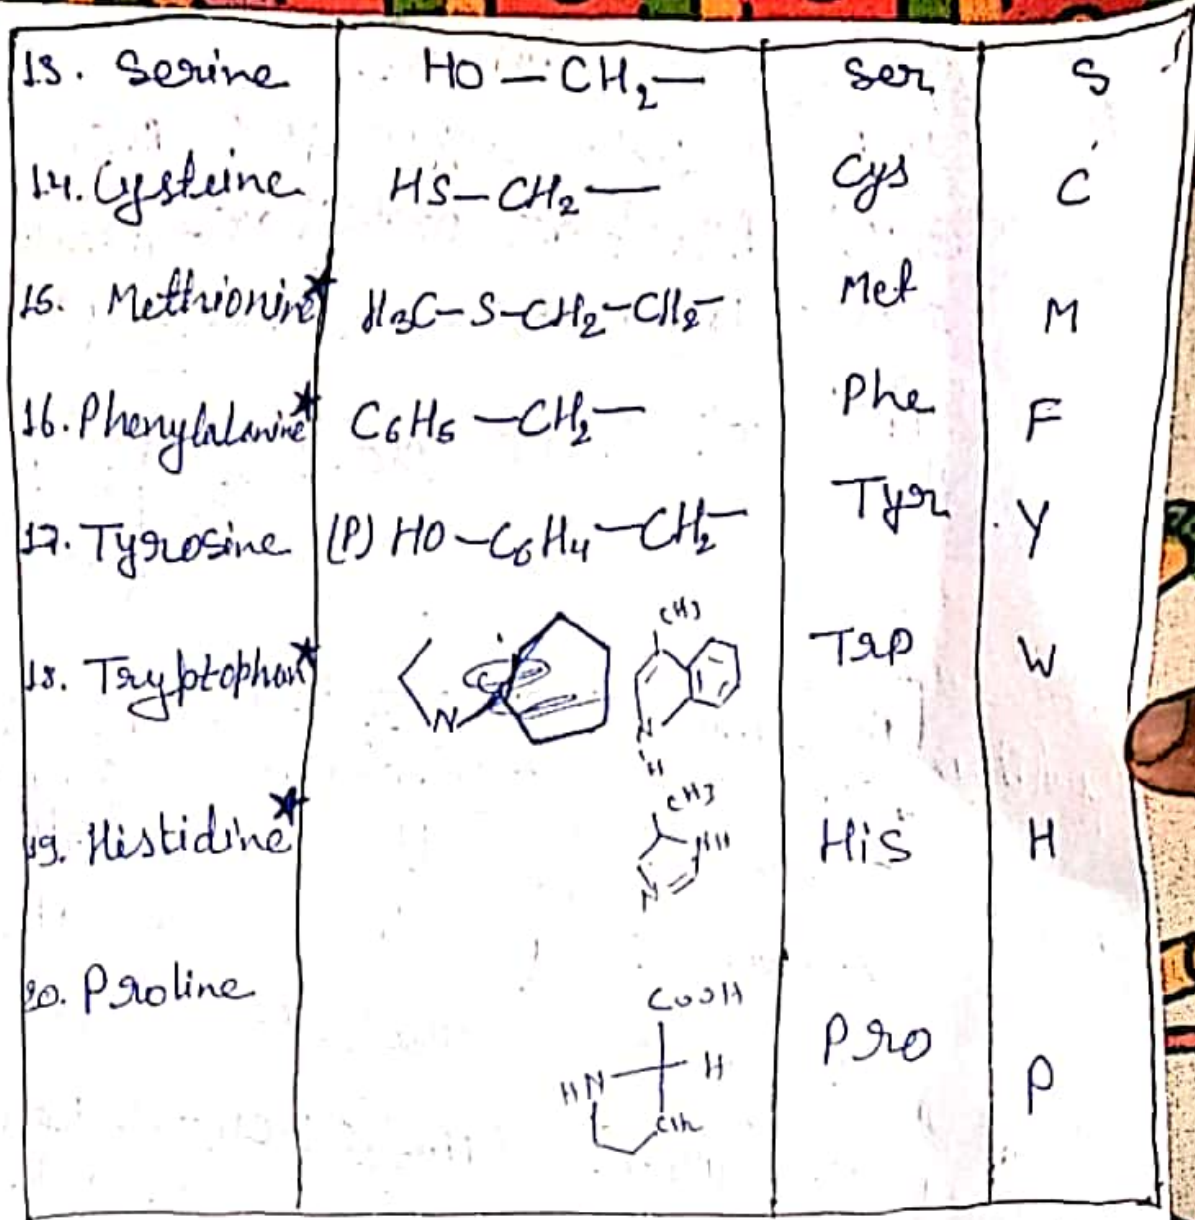 13. Serine HO-CH2- Ser S
14. Cysteine HS-CH2- Cys C
15. Methionine* H3C-S-CH2-CH2- Met M
16. Phenylalanine* C6H5-CH2- Phe F
17. Tyrosine (P) HO-C6H4-CH2- Tyr Y
CH3
18. Tryptophan* N N Trp W
H
CH3
19. Histidine* NH His H
N
20. Proline COOH
HN H Pro P
CH2